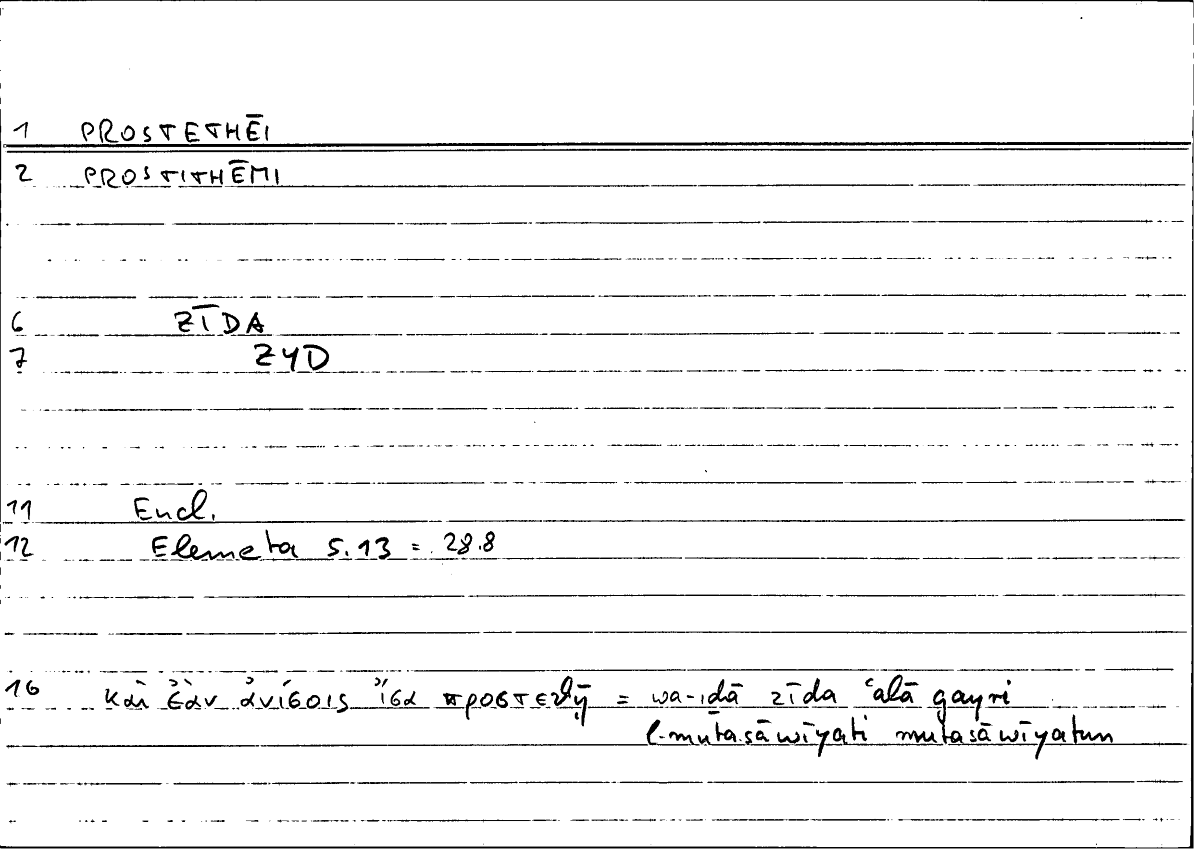 1 PROSTETHĒI
2 PROSTITHĒMI
6 ZĪDA
7 ZYD
11 Eucl.
12 Elemeta 5.13 = 28.8
16 καὶ ἐὰν ἀνίσοις ἴσα προστεθῇ = wa-idā zīda ʿalā gayri
l-mutasāwīyati mutasāwīyatun